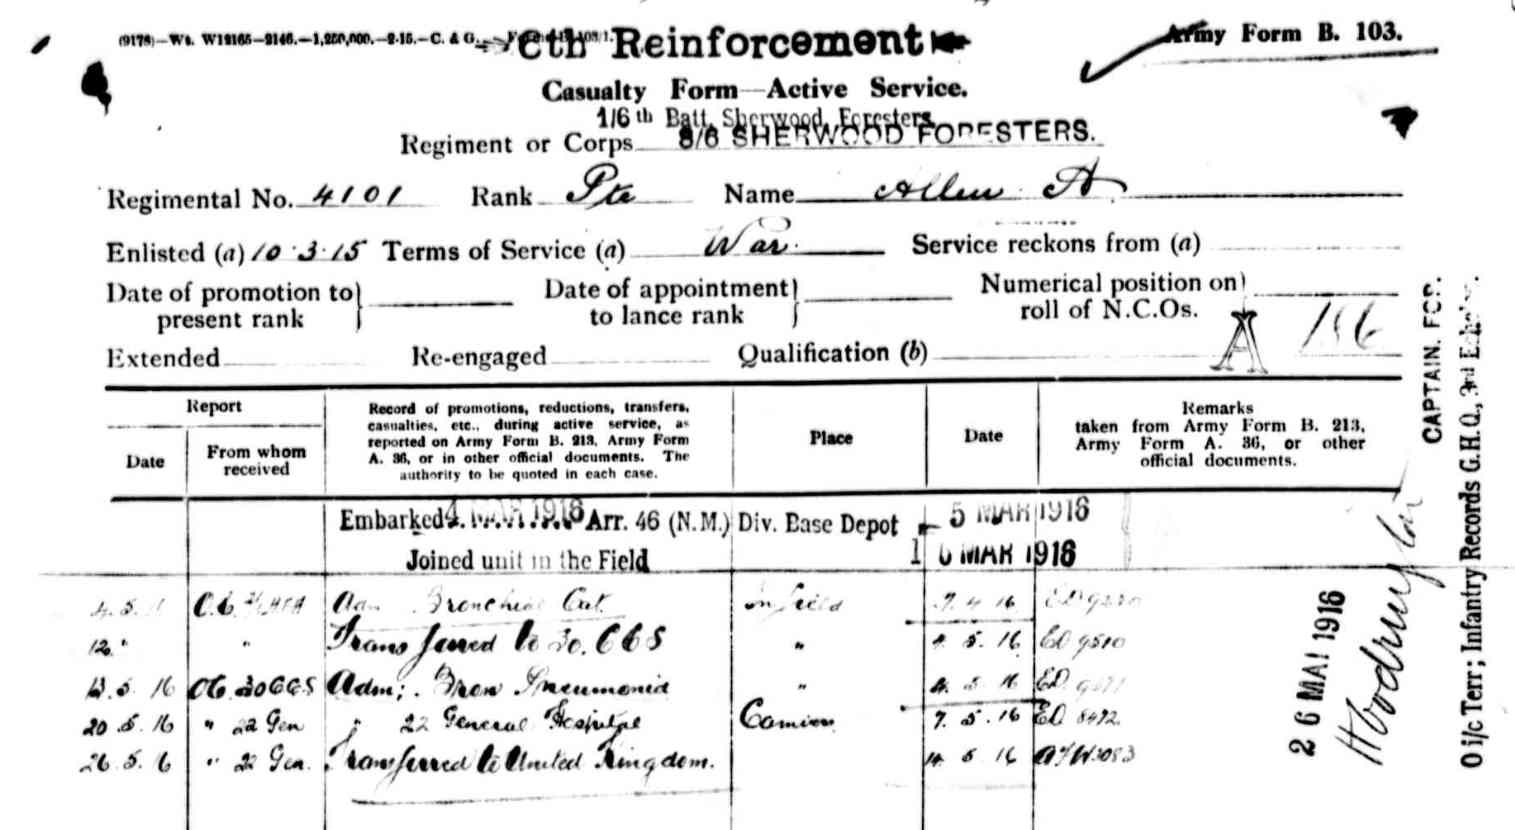 (9178)—Wt. W12165—2146.—1,250,000.—2-15.—C. & G.
6th Reinforcement
Army Form B. 103.
Casualty Form—Active Service.
1/6th Batt. Sherwood Foresters
Regiment or Corps 8/6 SHERWOOD FORESTERS.
Regimental No. 4101 Rank Pte Name Allen A
Enlisted (a) 10.3.15 Terms of Service (a) War. Service reckons from (a)
Date of promotion to present rank } Date of appointment to lance rank } Numerical position on roll of N.C.Os. }
A 186
Extended Re-engaged Qualification (b)
Report
Date
From whom received
Record of promotions, reductions, transfers,
casualties, etc., during active service, as
reported on Army Form B. 213, Army Form
A. 36, or in other official documents. The
authority to be quoted in each case.
Place
Date
Remarks
taken from Army Form B. 213,
Army Form A. 36, or other
official documents.
Embarked 4 MAR 1916 Arr. 46 (N.M.) Div. Base Depot 5 MAR 1916
Joined unit in the Field 1 6 MAR 1916
4.5. O.C. Adm Bronchial Cat. In field 7.4.16
12 " " Transferred to 30. CCS " 4.5.16 ED 9510
13.5.16 OC 30 CCS Adm; Bron Pneumonia " 4.5.16 ED
20.5.16 " 22 Gen " 22 General Hospital Camiers 7.5.16 ED 8492
26.5.16 " 22 Gen. Transferred to United Kingdom. 14.5.16 AFW3083
26 MAI 1916
CAPTAIN. FOR.
O i/c Terr; Infantry Records G.H.Q., 3rd Echelon.